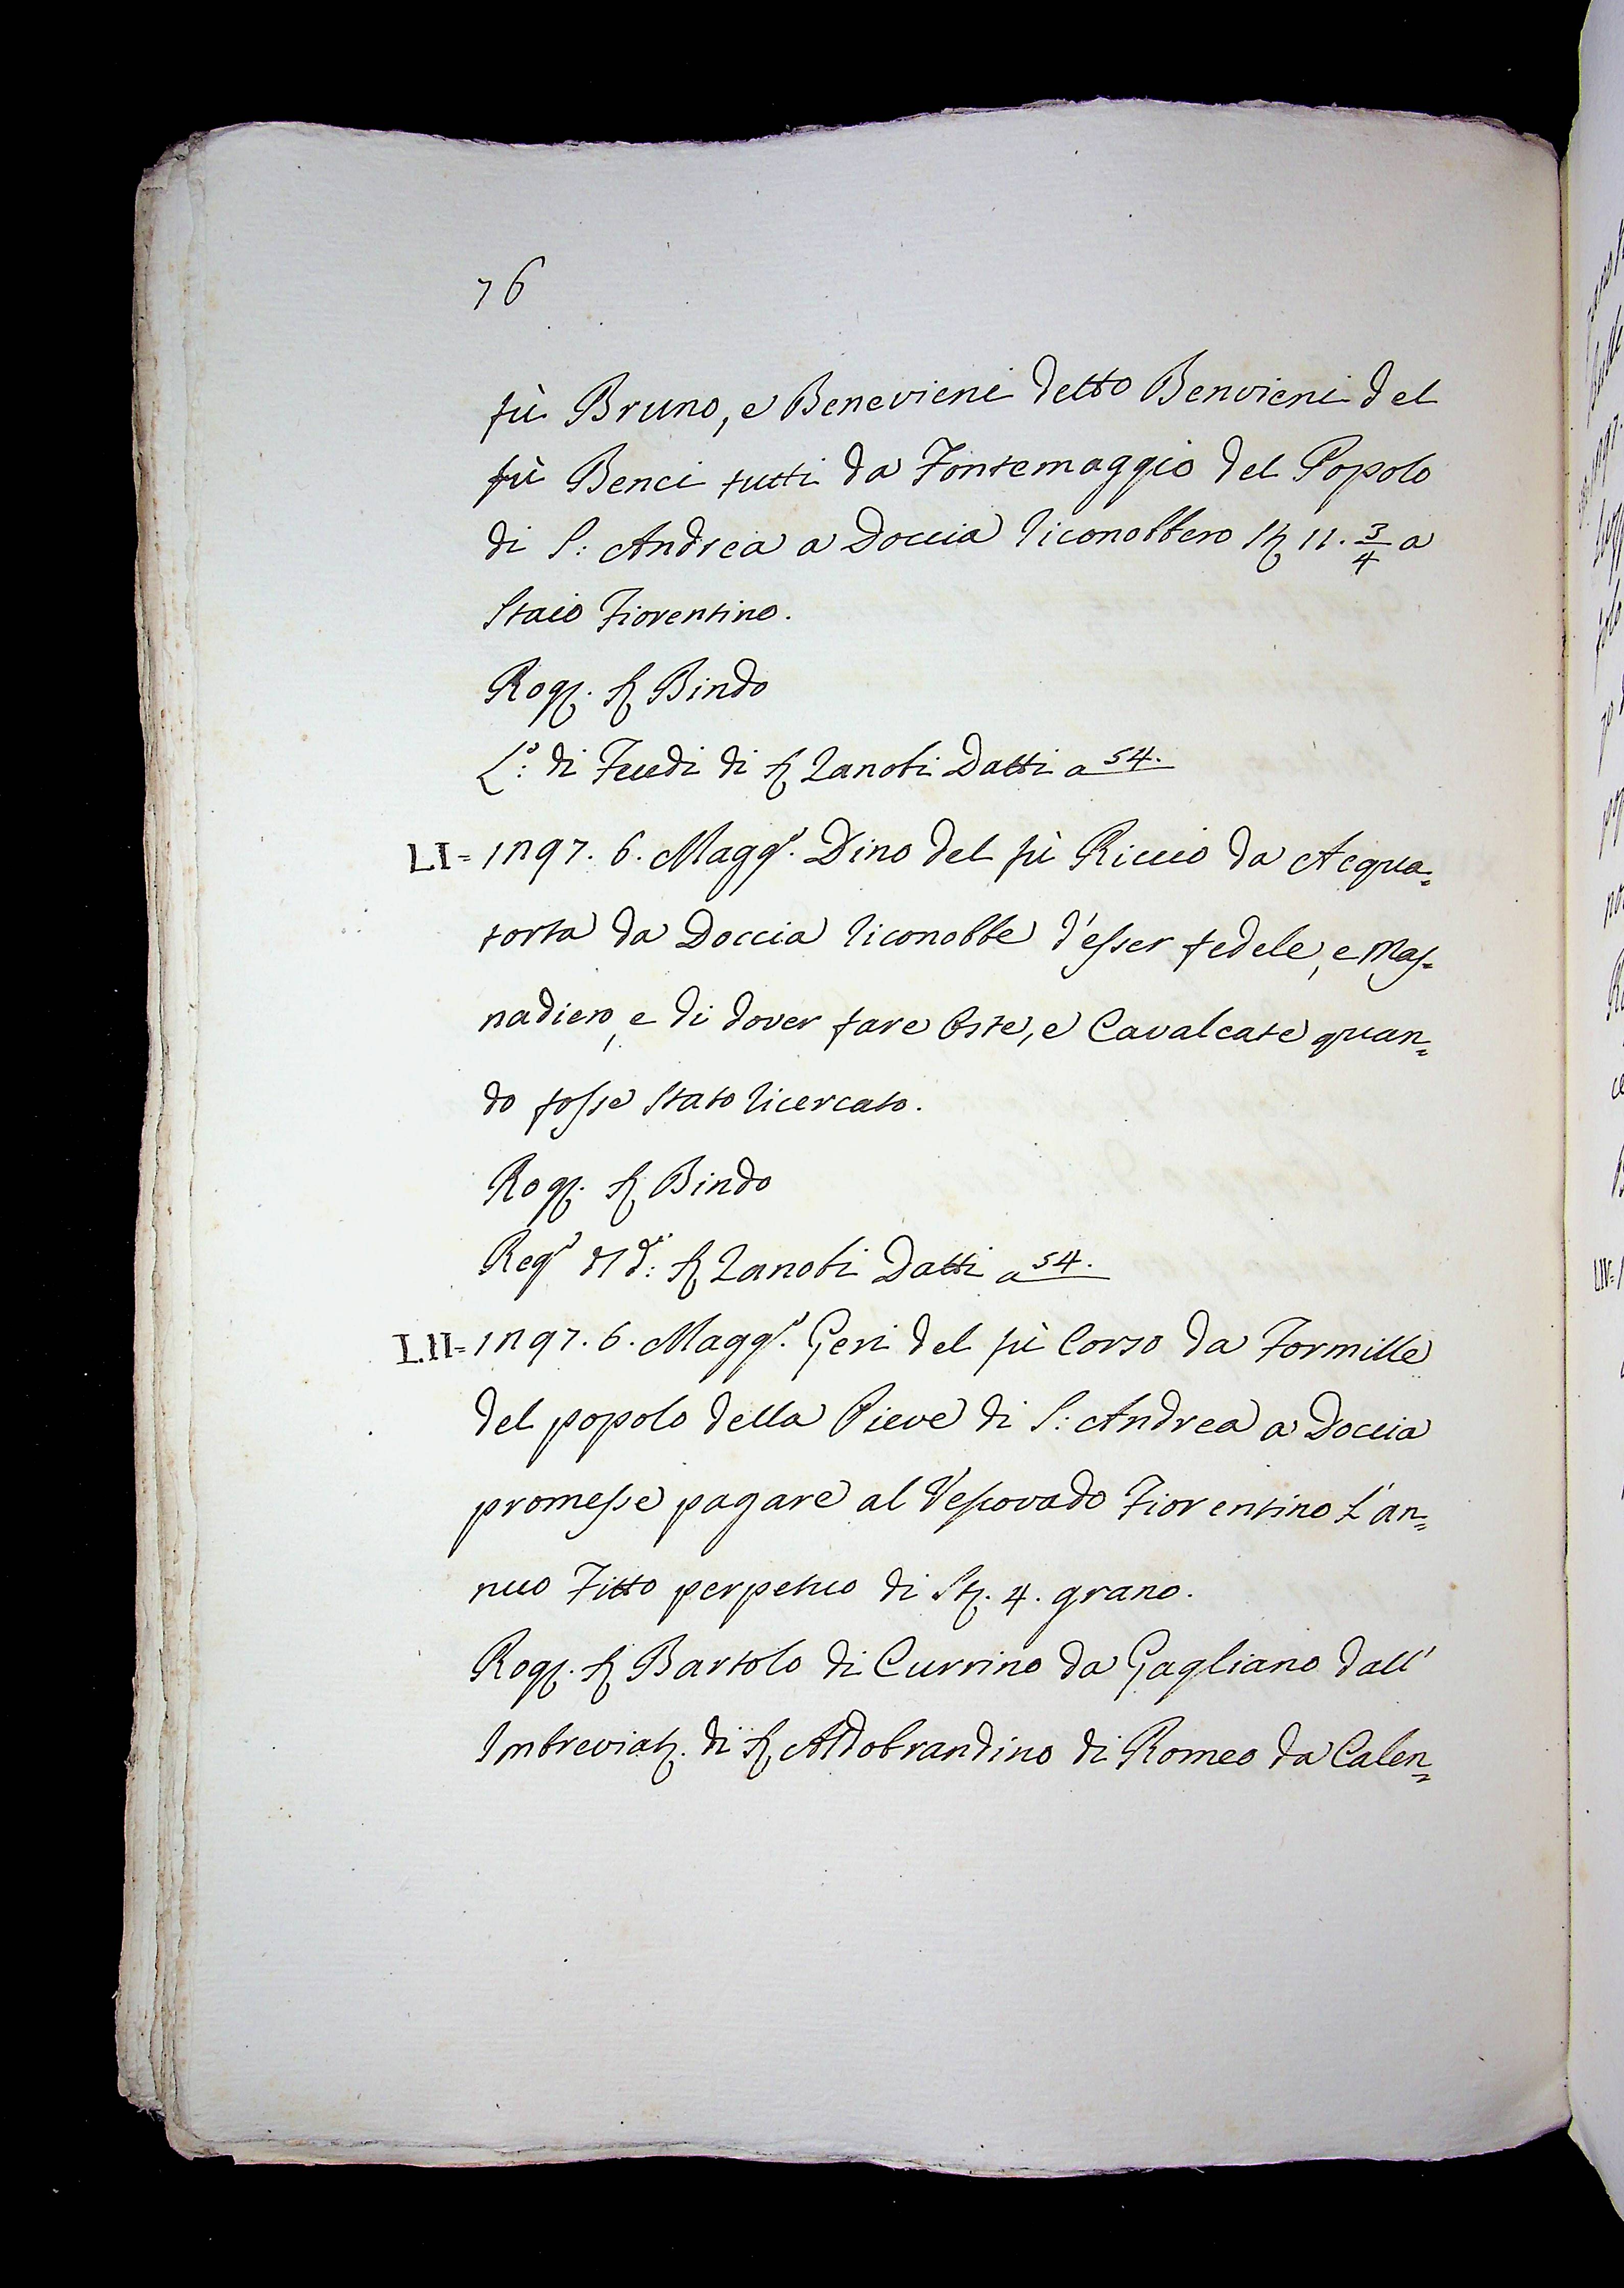 76
fù Bruno, e Benevieni detto Benvieni del
fù Benci tutti da Fontemaggio del Popolo
di S: Andrea a Doccia riconobbero St 11. 3/4 a
Staio Fiorentino.
Rog. S Bindo
L.o di Feudi di S Zanobi Datti a 54.
LI= 1297. 6. Magg.o Dino del fù Riccio da Acqua=
torta da Doccia riconobbe d'esser fedele, e Mas=
nadiero, e di dover fare Oste, e Cavalcate quan=
do fosse stato ricercato.
Rog. S Bindo
Reg.o S Zanobi Datti a 54.
LII= 1297. 6. Magg.o Geri del fù Corso da Formille
del popolo della Pieve di S: Andrea a Doccia
promesse pagare al Vescovado Fiorentino l'an=
nuo Fitto perpetuo di St. 4. grano.
Rog. S Bartolo di Currino da Gagliano dall'
Imbreviat. di S Aldobrandino di Romeo da Calen=